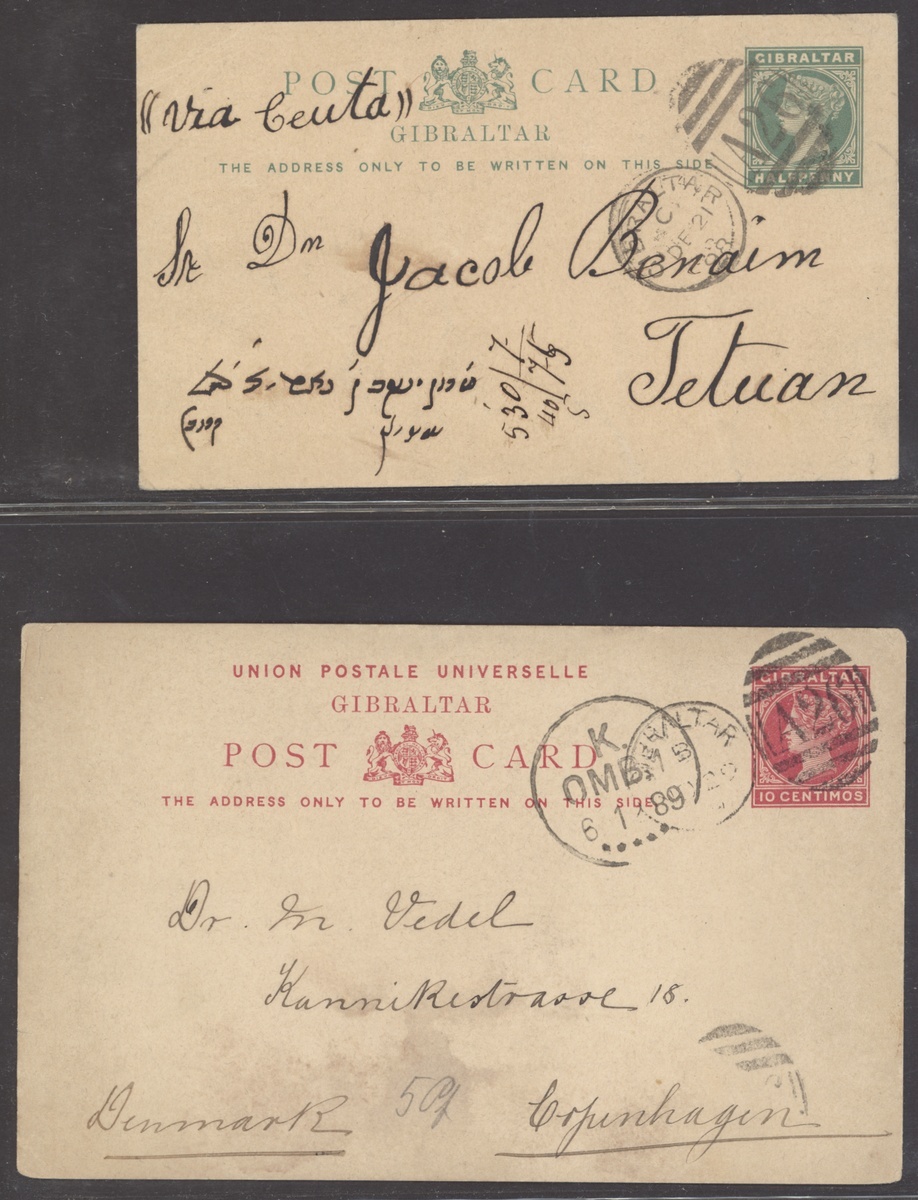 POST CARD
GIBRALTAR
THE ADDRESS ONLY TO BE WRITTEN ON THIS SIDE
GIBRALTAR
HALFPENNY
A26
"Via Ceuta"
GIBRALTAR
C
DE 21
88
Sr Dn Jacob Benaim
Tetuan
530/7
40/75
5
UNION POSTALE UNIVERSELLE
GIBRALTAR
POST CARD
THE ADDRESS ONLY TO BE WRITTEN ON THIS SIDE
GIBRALTAR
10 CENTIMOS
A26
K.
OMB. 1
6 1 89
GIBRALTAR
Dr. M. Vedel
Kannikestrasse 18.
Denmark
Copenhagen